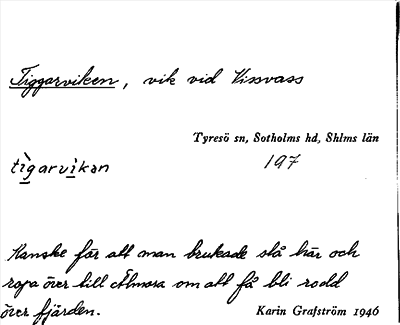 Tiggarviken, vik vid Vissvass
Tyresö sn, Sotholms hd, Shlms län
197
tìgarvikan
Kanske för att man brukade stå här och
ropa över till Älmora om att få bli rodd
över fjärden.
Karin Grafström 1946